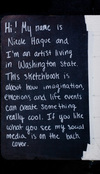 Hi! My name is
Nicole Hague and
I'm an artist living
in Washington State.
This sketchbook is
about how imagination,
emotions, and life events
can create something
really cool. If you like
what you see my social
media is on the back
cover.